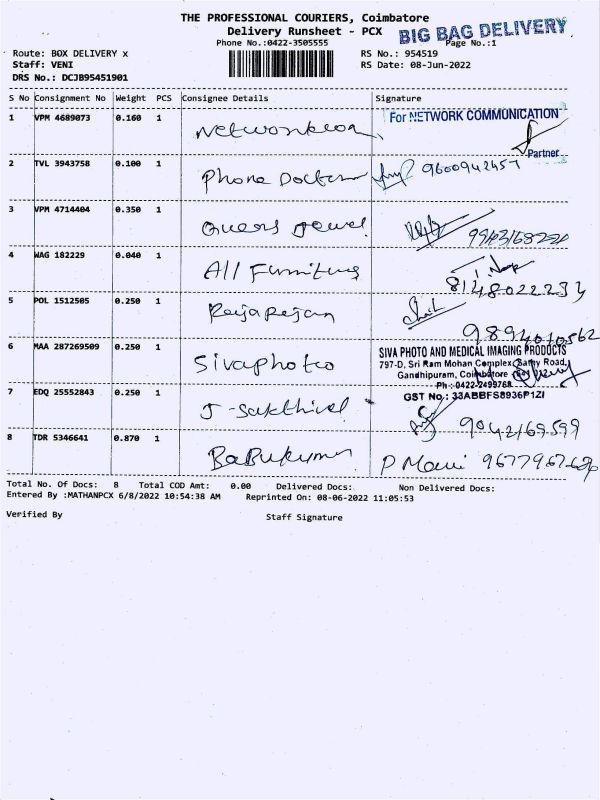 THE PROFESSIONAL COURIERS, Coimbatore
Delivery Runsheet - PCX BIG BAG DELIVERY
Phone No.:0422-3505555 Page No.:1
Route: BOX DELIVERY x RS No.: 954519
Staff: VENI RS Date: 08-Jun-2022
DRS No.: DCJB95451901
S No Consignment No Weight PCS Consignee Details Signature
1 VPM 4689073 0.160 1 For NETWORK COMMUNICATION
Partner
2 TVL 3943758 0.100 1 Phone Doctor 9600942457
3 VPM 4714404 0.350 1 Queens Jewel
4 WAG 182229 0.040 1 All Furniture
8148022234
5 POL 1512505 0.250 1 Raja Rajan
9894010562
6 MAA 287269509 0.250 1 Sivaphoto SIVA PHOTO AND MEDICAL IMAGING PRODUCTS
797-D, Sri Ram Mohan Complex, Sathy Road,
Gandhipuram, Coimbatore
Ph : 0422-2499768
7 EDQ 25552843 0.250 1 J-Sakthivel GST No.: 33ABBFS8936P1ZI
9042169599
8 TDR 5346641 0.870 1 Babukumar P Mani
Total No. Of Docs: 8 Total COD Amt: 0.00 Delivered Docs: Non Delivered Docs:
Entered By :MATHANPCX 6/8/2022 10:54:38 AM Reprinted On: 08-06-2022 11:05:53
Verified By Staff Signature